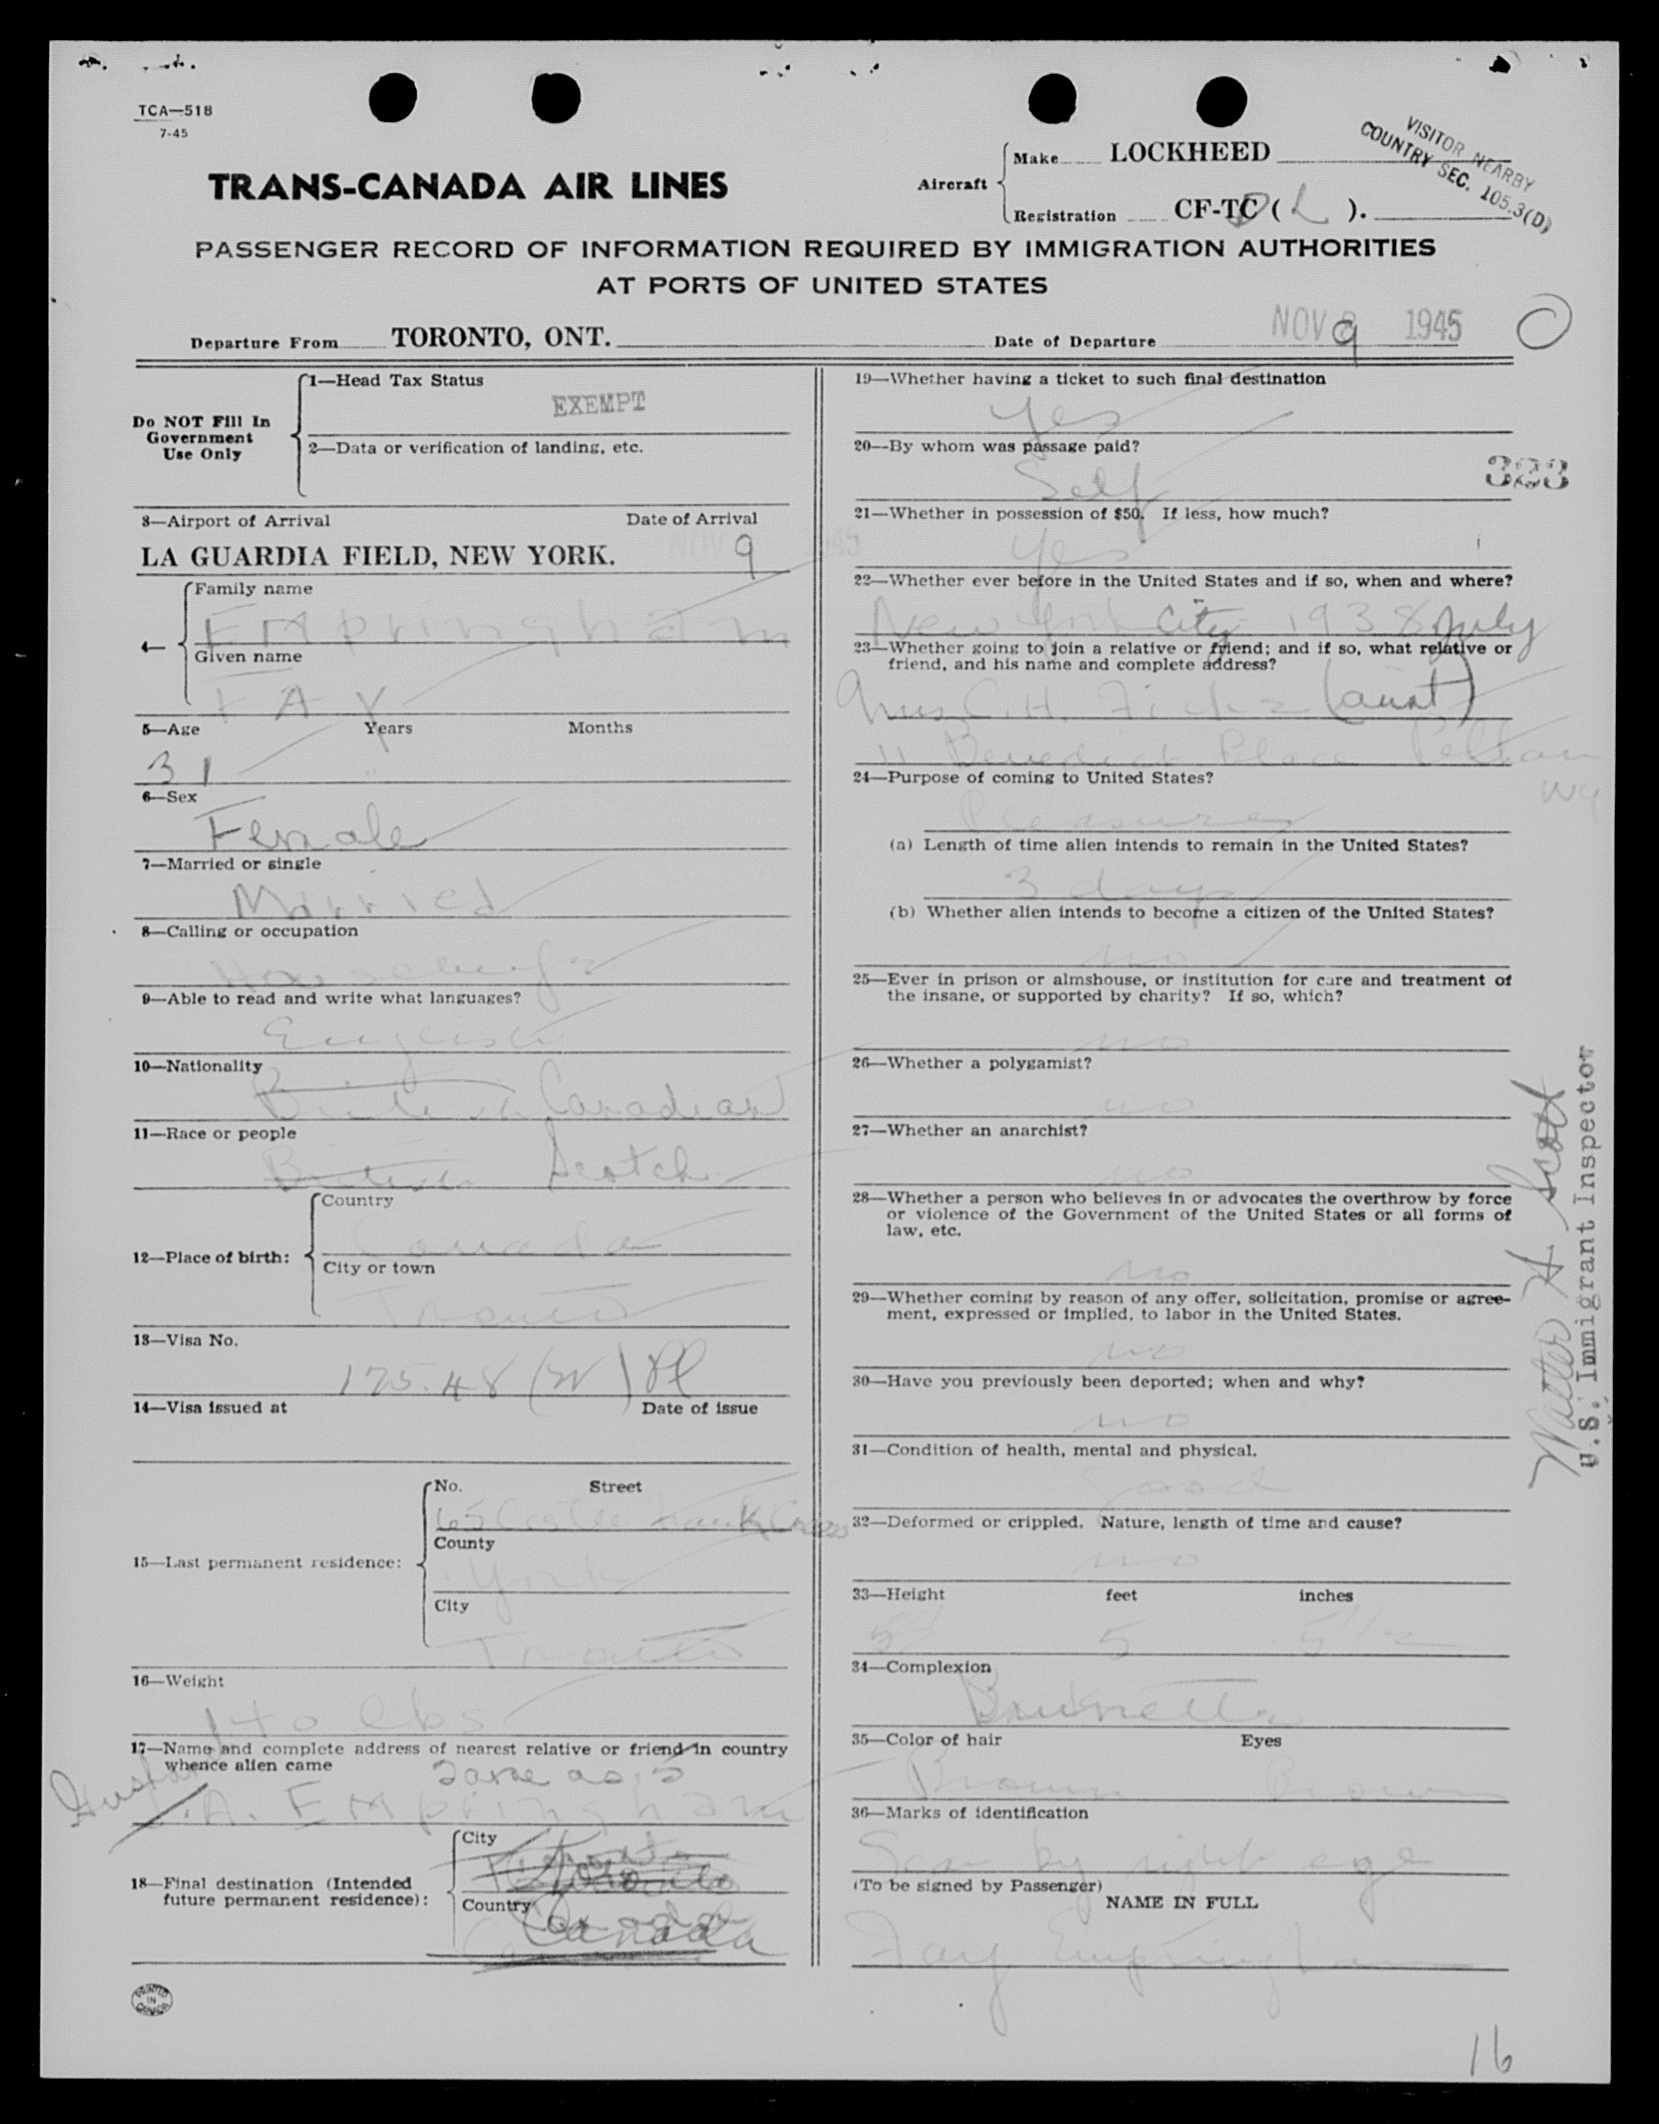 TCA—518
7-45
TRANS-CANADA AIR LINES
Aircraft
Make LOCKHEED
Registration CF-TC ( L ).
VISITOR NEARBY
COUNTRY SEC. 105.3(D)
PASSENGER RECORD OF INFORMATION REQUIRED BY IMMIGRATION AUTHORITIES
AT PORTS OF UNITED STATES
Departure From TORONTO, ONT. Date of Departure NOV 9 1945
Do NOT Fill In
Government
Use Only
1—Head Tax Status
EXEMPT
2—Data or verification of landing, etc.
3—Airport of Arrival Date of Arrival
LA GUARDIA FIELD, NEW YORK. NOV 9 1945
4—
Family name
EMpringham
Given name
FAY
5—Age Years Months
31
6—Sex
Female
7—Married or single
Married
8—Calling or occupation
Housewife
9—Able to read and write what languages?
English
10—Nationality
British Canadian
11—Race or people
British Scotch
12—Place of birth:
Country
Canada
City or town
Toronto
13—Visa No.
175.48 (W)
14—Visa issued at Date of issue
15—Last permanent residence:
No. Street
65 Castle Frank Cres
County
York
City
Toronto
16—Weight
140 lbs
17—Name and complete address of nearest relative or friend in country
whence alien came
same as 15
Husband
A. EMpringham
18—Final destination (Intended
future permanent residence):
City
Toronto
Country
Canada
PRINTED
IN
CANADA
19—Whether having a ticket to such final destination
Yes
20—By whom was passage paid?
Self
323
21—Whether in possession of $50. If less, how much?
Yes
22—Whether ever before in the United States and if so, when and where?
New York City 1938 July
23—Whether going to join a relative or friend; and if so, what relative or
friend, and his name and complete address?
Mrs C. H. (aunt)
11 Benedict Place Pelham
NY
24—Purpose of coming to United States?
Pleasure
(a) Length of time alien intends to remain in the United States?
3 days
(b) Whether alien intends to become a citizen of the United States?
no
25—Ever in prison or almshouse, or institution for care and treatment of
the insane, or supported by charity? If so, which?
no
26—Whether a polygamist?
no
27—Whether an anarchist?
no
28—Whether a person who believes in or advocates the overthrow by force
or violence of the Government of the United States or all forms of
law, etc.
no
29—Whether coming by reason of any offer, solicitation, promise or agree-
ment, expressed or implied, to labor in the United States.
no
30—Have you previously been deported; when and why?
no
31—Condition of health, mental and physical.
Good
32—Deformed or crippled. Nature, length of time and cause?
no
33—Height feet inches
5 5 1/2
34—Complexion
Brunette
35—Color of hair Eyes
Brown Brown
36—Marks of identification
Scar by right eye
(To be signed by Passenger)
NAME IN FULL
Fay Empringham
Walter H Scott
U.S. Immigrant Inspector
16